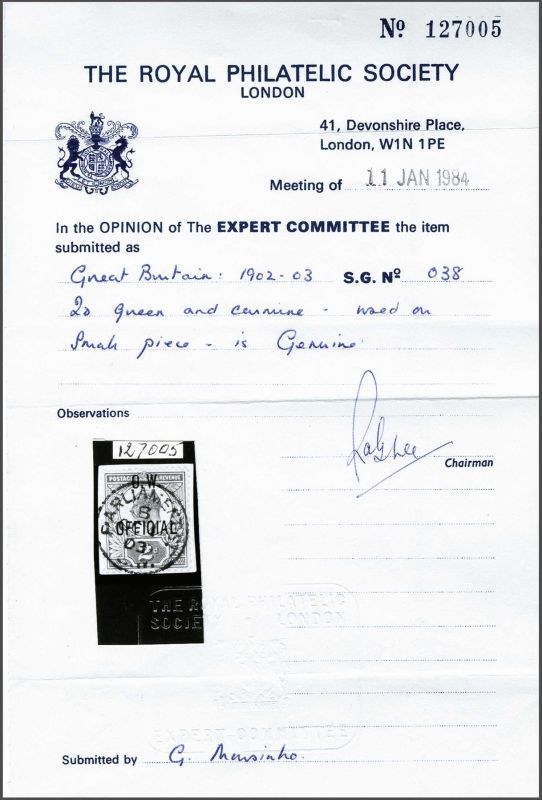 Nº 127005
THE ROYAL PHILATELIC SOCIETY
LONDON
41, Devonshire Place,
London, W1N 1PE
Meeting of 11 JAN 1984
In the OPINION of The EXPERT COMMITTEE the item
submitted as
Great Britain: 1902-03 S.G. Nº 038
2d green and carmine - used on
small piece - is Genuine.
Observations
Chairman
127005
POSTAGE REVENUE
O.W.
PARLIAMEN
OFFICIAL
03
2d
THE ROYAL PHILATELIC
SOCIETY LONDON
EXPERT COMMITTEE
Submitted by G. Monsinho.